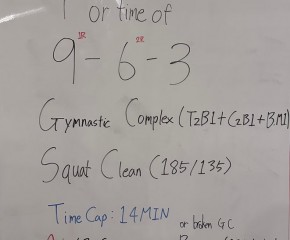 or time of
1R 2R
9-6-3
Gymnastic Complex (T2B1+C2B1+BM1)
Squat Clean (185/135)
Time Cap: 14MIN
or broken GC